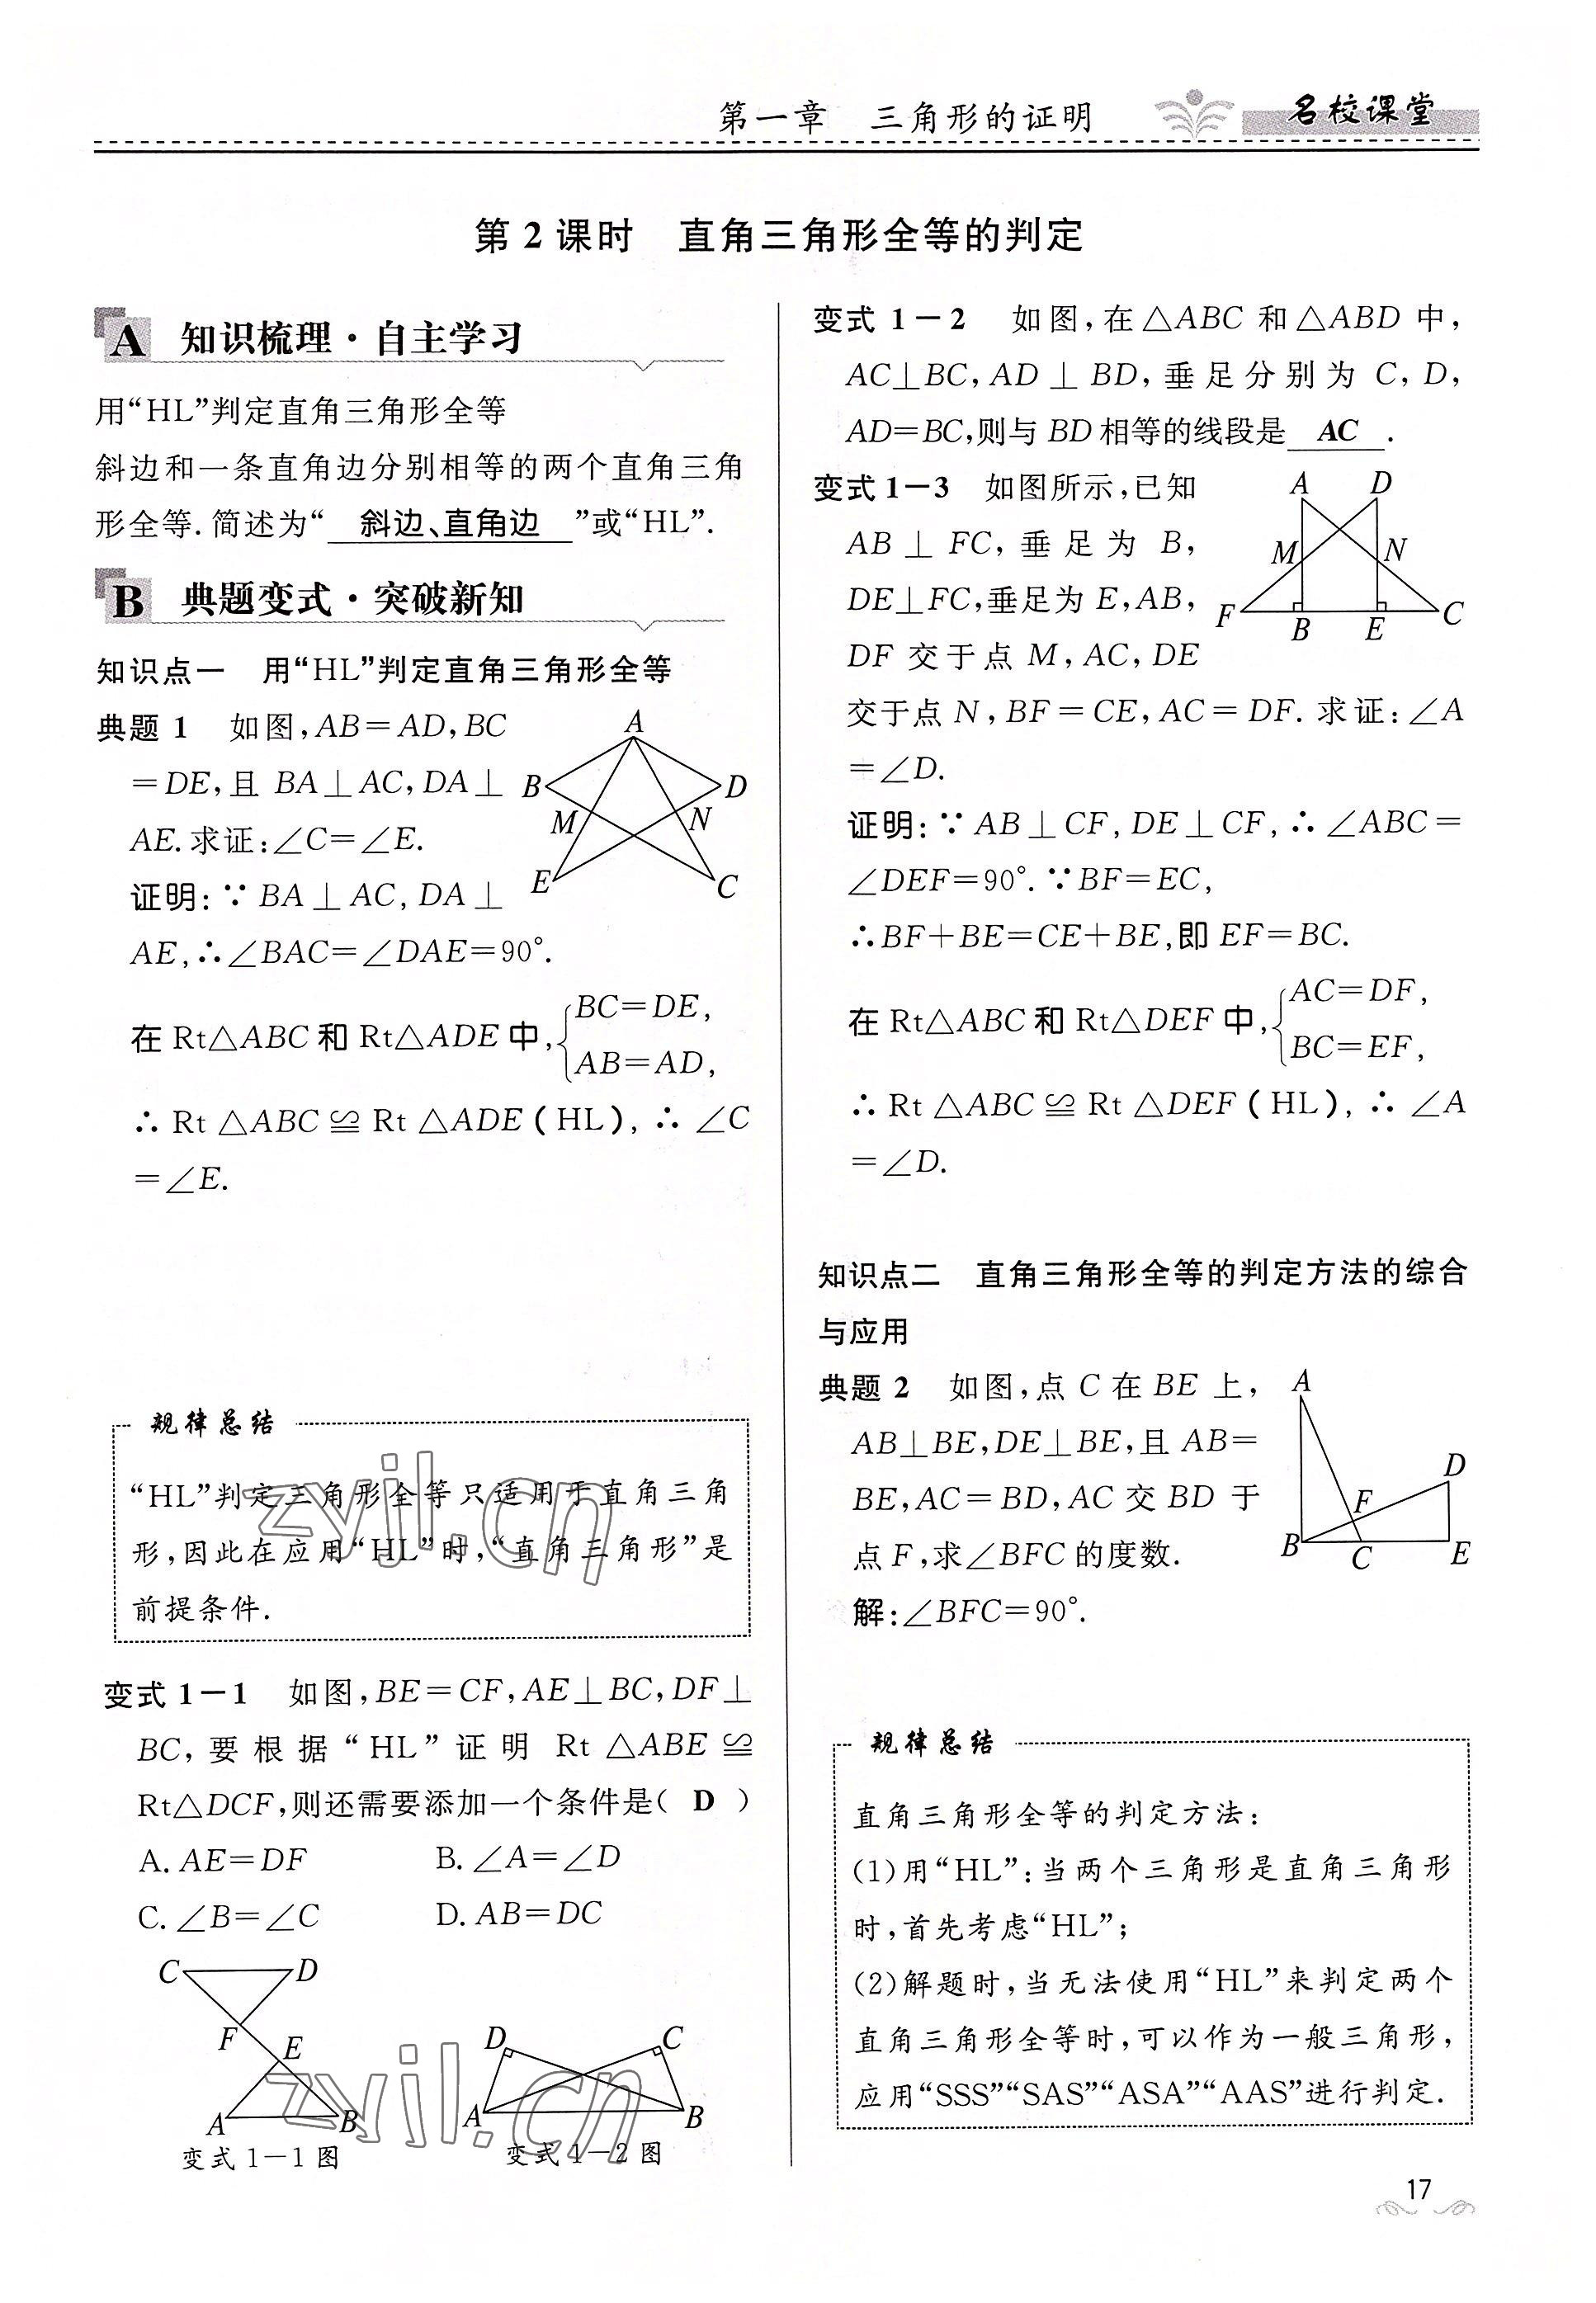 第一章　三角形的证明
名校课堂
第 2 课时　直角三角形全等的判定
A 知识梳理·自主学习
用“HL”判定直角三角形全等
斜边和一条直角边分别相等的两个直角三角
形全等.简述为“ 斜边、直角边 ”或“HL”.
B 典题变式·突破新知
知识点一　用“HL”判定直角三角形全等
典题 1　如图,AB=AD,BC
=DE,且 BA⊥AC,DA⊥
AE.求证:∠C=∠E.
A
B
D
M
N
E
C
证明:∵BA⊥AC,DA⊥
AE,∴∠BAC=∠DAE=90°.
在 Rt△ABC 和 Rt△ADE 中,{BC=DE,
AB=AD,
∴ Rt △ABC≌Rt △ADE(HL),∴ ∠C
=∠E.
规律总结
“HL”判定三角形全等只适用于直角三角
形,因此在应用“HL”时,“直角三角形”是
前提条件.
zyjl.cn
变式 1－1　如图,BE=CF,AE⊥BC,DF⊥
BC,要根据“HL”证明 Rt △ABE≌
Rt△DCF,则还需要添加一个条件是( D )
A. AE=DF　B. ∠A=∠D
C. ∠B=∠C　D. AB=DC
C
D
F
E
A
B
变式 1－1 图
D
C
A
B
变式 1－2 图
zyjl.cn
变式 1－2　如图,在△ABC 和△ABD 中,
AC⊥BC,AD⊥BD,垂足分别为 C,D,
AD=BC,则与 BD 相等的线段是 AC .
变式 1－3　如图所示,已知
AB ⊥ FC,垂足为 B,
DE⊥FC,垂足为 E,AB,
DF 交于点 M,AC,DE
交于点 N,BF=CE,AC=DF.求证:∠A
=∠D.
A
D
M
N
F
B
E
C
证明:∵AB⊥CF,DE⊥CF,∴∠ABC=
∠DEF=90°.∵BF=EC,
∴BF+BE=CE+BE,即 EF=BC.
在 Rt△ABC 和 Rt△DEF 中,{AC=DF,
BC=EF,
∴ Rt △ABC≌Rt △DEF(HL),∴ ∠A
=∠D.
知识点二　直角三角形全等的判定方法的综合
与应用
典题 2　如图,点 C 在 BE 上,
AB⊥BE,DE⊥BE,且 AB=
BE,AC=BD,AC 交 BD 于
点 F,求∠BFC 的度数.
解:∠BFC=90°.
A
D
F
B
C
E
规律总结
直角三角形全等的判定方法:
(1)用“HL”:当两个三角形是直角三角形
时,首先考虑“HL”;
(2)解题时,当无法使用“HL”来判定两个
直角三角形全等时,可以作为一般三角形,
应用“SSS”“SAS”“ASA”“AAS”进行判定.
17